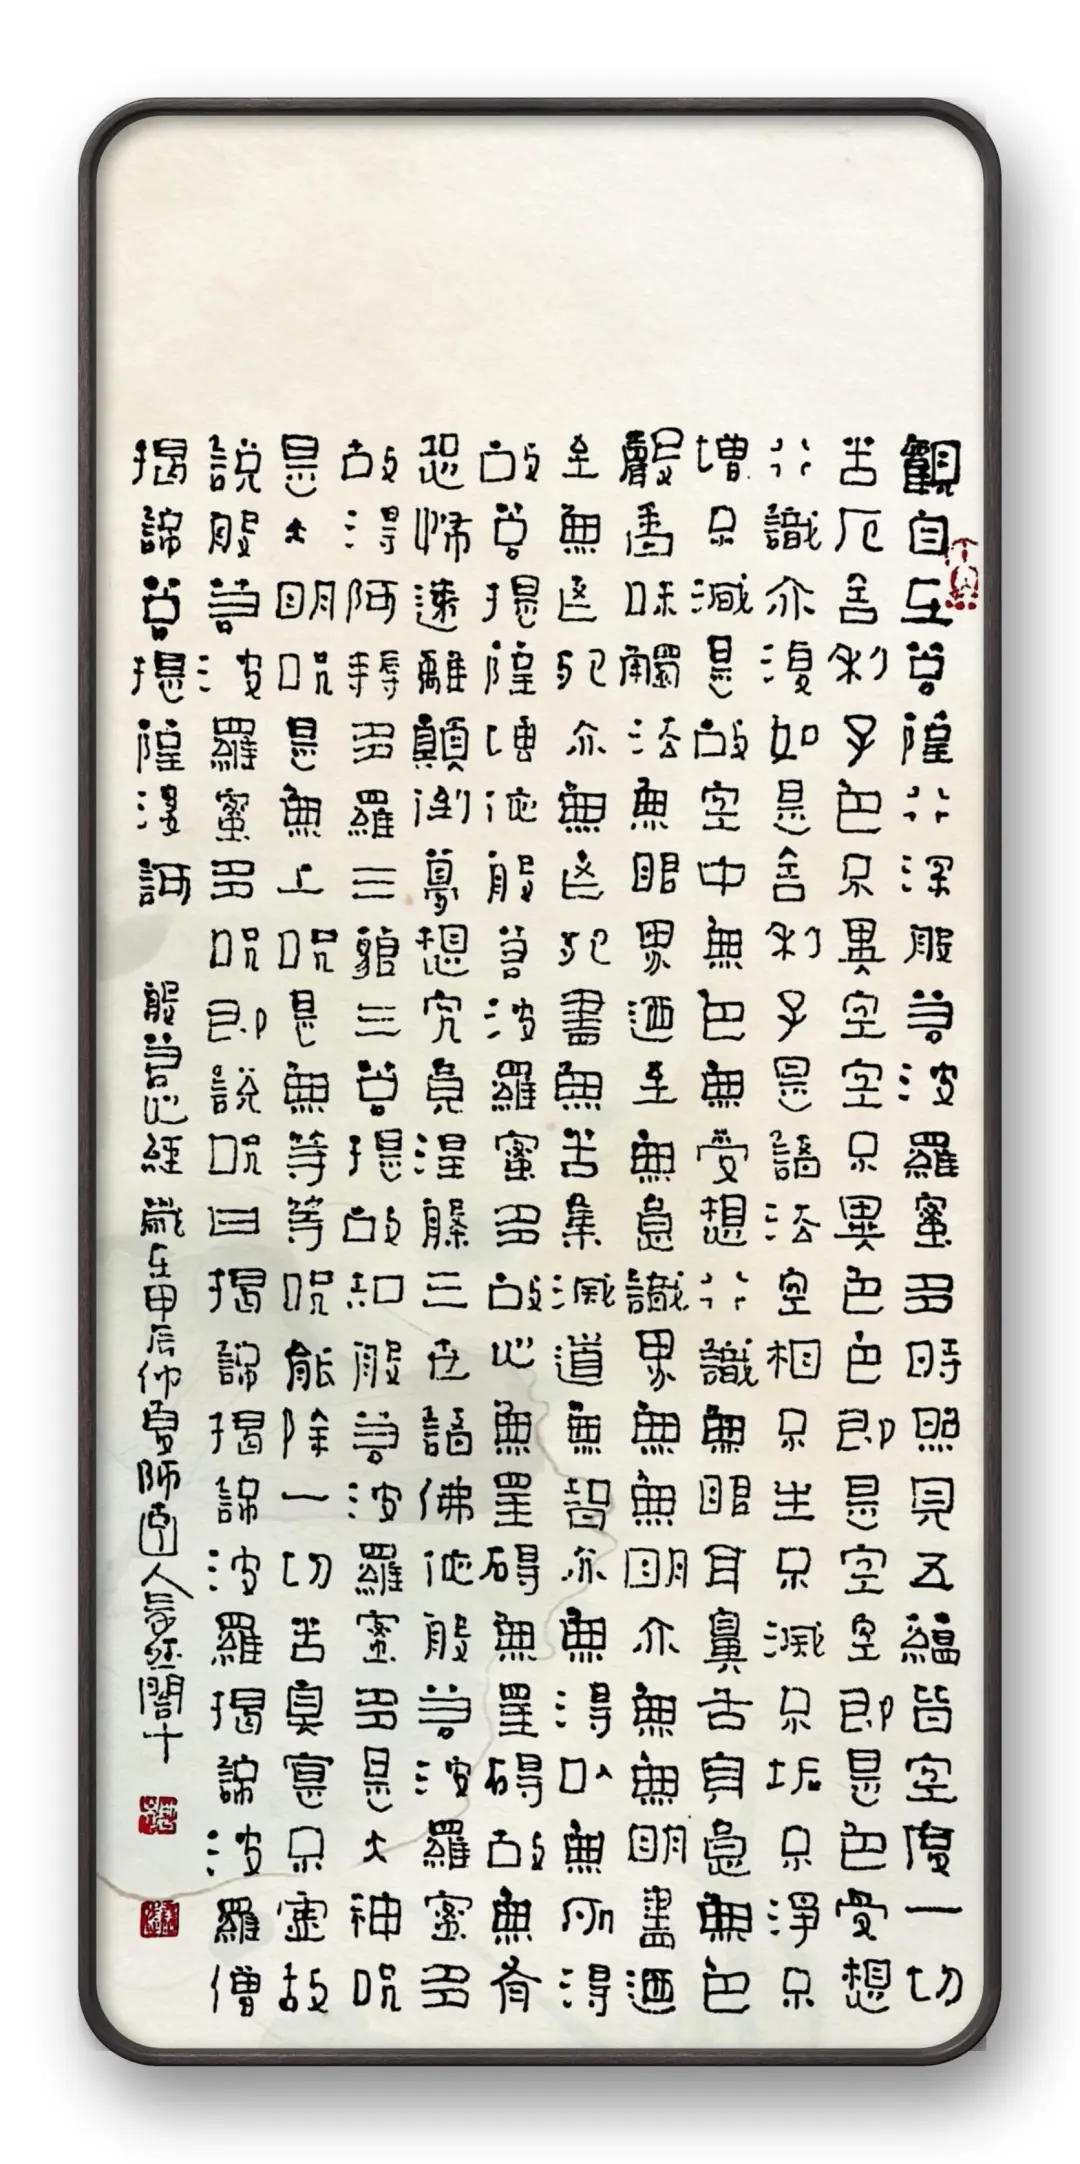 觀自在菩薩行深般若波羅蜜多時照見五蘊皆空度一切
苦厄舍利子色不異空空不異色色即是空空即是色受想
行識亦復如是舍利子是諸法空相不生不滅不垢不淨不
增不減是故空中無色無受想行識無眼耳鼻舌身意無色
聲香味觸法無眼界迺至無意識界無無明亦無無明盡迺
至無老死亦無老死盡無苦集滅道無智亦無得以無所得
故菩提薩埵依般若波羅蜜多故心無罣礙無罣礙故無有
恐怖遠離顛倒夢想究竟涅槃三世諸佛依般若波羅蜜多
故得阿耨多羅三藐三菩提故知般若波羅蜜多是大神咒
是大明咒是無上咒是無等等咒能除一切苦真實不虛故
說般若波羅蜜多咒即說咒曰揭諦揭諦波羅揭諦波羅僧
揭諦菩提薩婆訶 般若心經 歲在甲辰仲夏師人